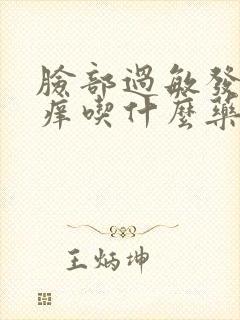 臉部過敏發
癢喫什麼藥
王炳坤